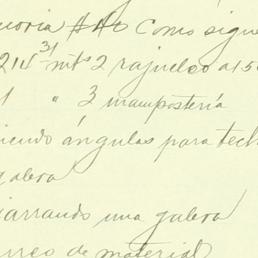 moria #No Como sigue
214 31 mts 2 rajueleo a 150
1 " 3 mampostería
iendo ángulas para tech
galera
iarrando una galera
arreo de material